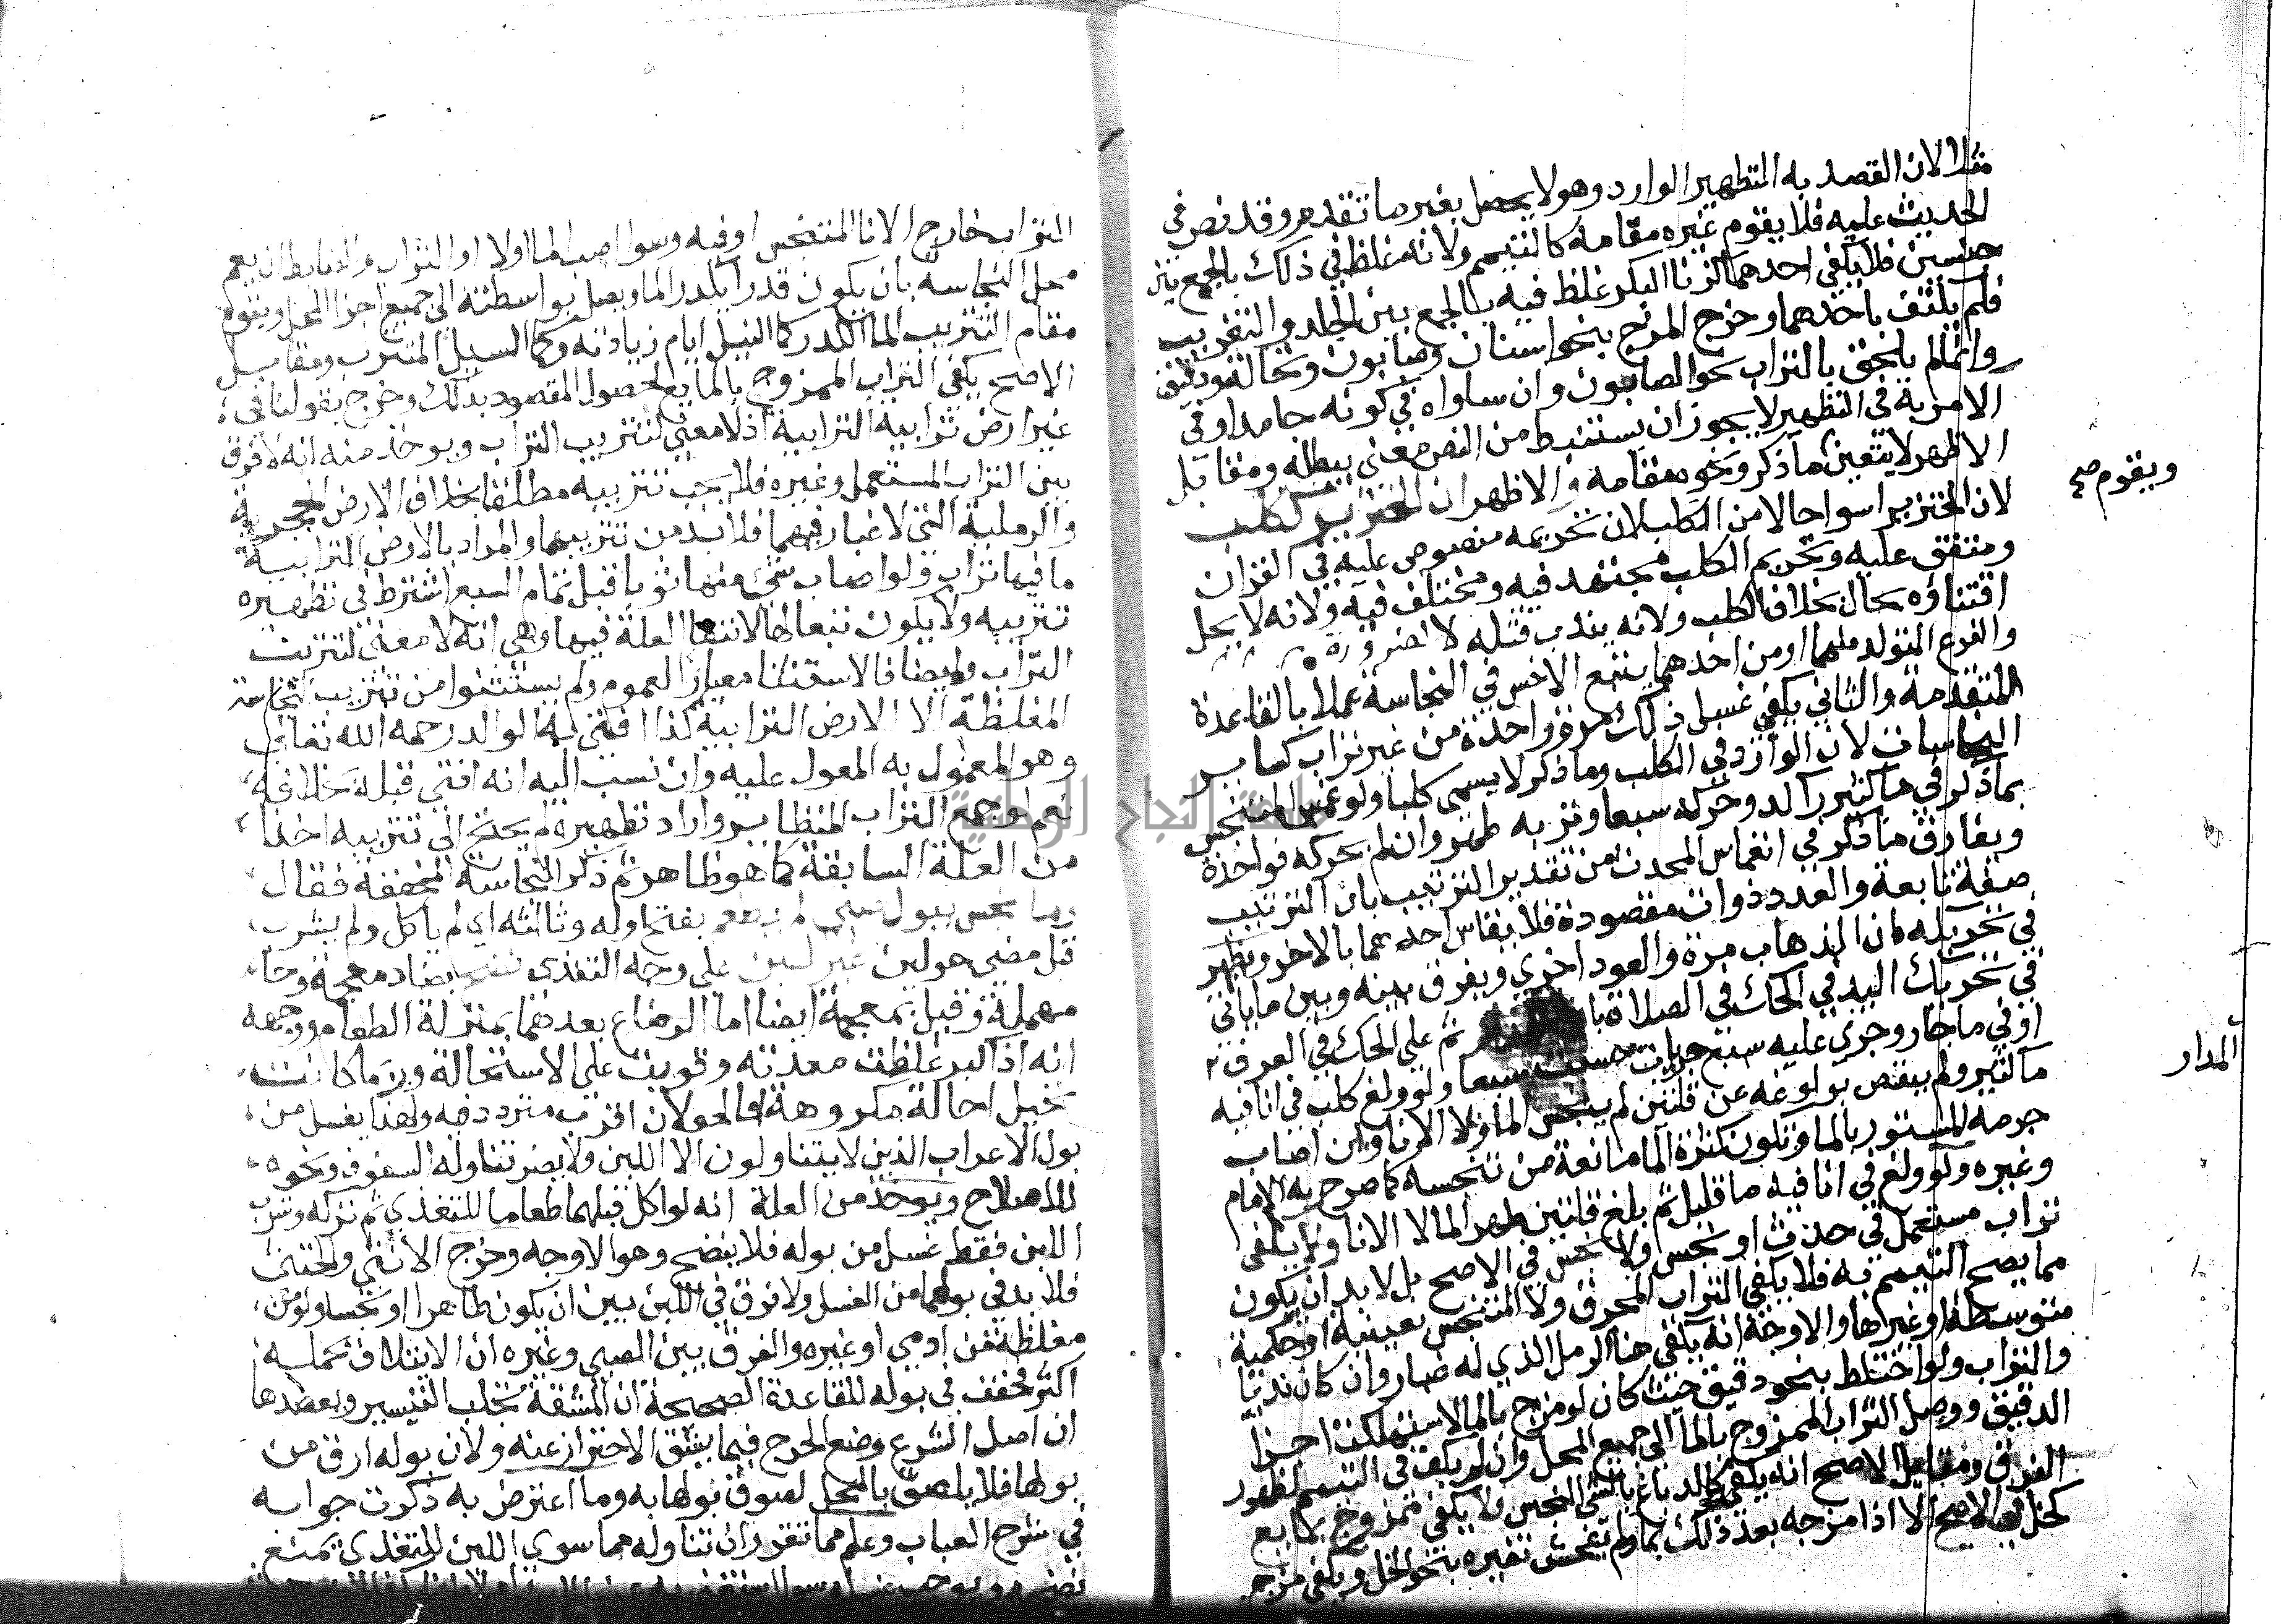 مثلا لان القصد به التطهير الوارد وهو لا يحصل بغير ما تقدم وقد نص في
الحديث عليه فلا يقوم غيره مقامه كالتيمم ولانه غلظ في ذلك بالجمع بين
جنسين فلا يكفي احدهما كزنا البكر غلظ فيه بالجمع بين الجلد والتغريب
فلم يكتف باحدهما وخرج المزج بنحو اشنان وصابون ونخالة ودقيق
وانما لم يلحق بالتراب نحو الصابون وان ساواه في كونه جامدا وفي
الامر به في التطهير لا يجوز ان يستنبط من النص معنى يبطله ومقابل
الاظهر لا يتعين ما ذكر ونحوه مقامه والاظهر ان الخنزير ككلب
ويقوم صح
لان الخنزير اسوا حالا من الكلب لان تحريمه منصوص عليه في القران
ومتفق عليه وتحريم الكلب مجتهد فيه ومختلف فيه ولانه لا يحل
اقتناؤه بحال بخلاف الكلب ولانه يندب قتله لا لضرورة
والفرع المتولد منهما او من احدهما يتبع الاخس في النجاسة عملا بالقاعدة
المتقدمة والثاني يكفي غسل ذلك مرة واحدة من غير تراب كساير
النجاسات لان الوارد في الكلب وما ذكر لا يسمى كلبا ولو غمس المتنجس
بما ذكر في ما كثير راكد وحركه سبعا وتربه طهر وان لم يحركه فواحدة
ويفارق ما ذكر في انغماس المحدث من تقدير الترتيب بان الترتيب
صفة تابعة والعدد ذوات مقصودة فلا يقاس احدهما بالاخر ويظهر
في تحريكه ان الذهاب مرة والعود اخري ويفرق بينه وبين ما ياتي
في تحريك اليد في الحك في الصلاة بان ثم علي الحك في العرف
المدار
او في ما جار وجري عليه سبع جريات حسبت سبعا ولو ولغ كلب في انا فيه
ما كثير ولم ينقص بولوغه عن قلتين لم ينجس الما ولا الانا وان اصاب
جرمه المستور بالما وتكون كثرة الما مانعة من تنجسه كما صرح به الامام
وغيره ولو ولغ في انا فيه ما قليل ثم بلغ قلتين طهر الما لا الانا ولا يكفي
تراب مستعمل في حدث او نجس ولا نجس في الاصح بل لا بد ان يكون
مما يصح التيمم به فلا يكفي التراب المحرق ولا المتنجس بعينية او حكمية
متوسطة او غيرها والاوجه انه يكفي هنا الرمل الذي له غبار وان كان نديا
والتراب ولو اختلط بنحو دقيق حيث كان لو مزج بالما لاستهلكت اجزا
الدقيق ووصل التراب الممزوج بالما الي جميع المحل وان لم يكف في التيمم لظهور
الفرق ومقابل الاصح انه يكفي كالدباغ بالشي النجس ولا يكفي ممزوج بمايع
كخل في الاصح الا اذا مزجه بعد ذلك بما ولم يفحش تغيره بنحو الخل ويكفي مزج
التراب خارج الانا المتنجس او فيه وسوا صب الما اولا او التراب والضابط ان يعم
محل النجاسة بان يكون قدرا يكدر الما ويصل بواسطته الى جميع اجزا المحل ويقوم
مقام التتريب الما الكدر كما النيل ايام زيادته وكما السيل المتترب ومقابل
الاصح يكفي التراب الممزوج بالمايع لحصول المقصود بذلك وخرج بقولنا في
غير ارض ترابية الترابية اذ لا معنى لتتريب التراب ويوخذ منه انه لا فرق
بين التراب المستعمل وغيره فلا يجب تتريبه مطلقا بخلاف الارض الحجرية
والرملية التي لا غبار فيهما فلا بد من تتريبهما والمراد بالارض الترابية
ما فيها تراب ولو اصاب شي منها ثوبا قبل تمام السبع اشترط في تطهيره
تتريبه ولا يكون تبعا لها لانتفا العلة فيها وهي انه لا معنى لتتريب
التراب وايضا فالاستثنا معيار العموم ولم يستثنوا من تتريب النجاسة
المغلظة الا الارض الترابية كذا افتى به الوالد رحمه الله تعالى
وهو المعمول به المعول عليه وان نسب اليه انه افتى قبله بخلافه
نعم لو جمع التراب المتطاير واراد تطهيره لم يحتج الى تتريبه اخذا
من العلة السابقة كما هو ظاهر ثم ذكر النجاسة المخففة فقال
وما نجس ببول صبي لم يطعم بفتح اوله وثالثه اي لم ياكل ولم يشرب
قبل مضي حولين غير لبن على وجه التغذي نضح بضاد معجمة وحا
مهملة وقيل بمعجمة ايضا اما الرضاع بعدهما بمنزلة الطعام ووجهه
انه اذا كبر غلظت معدته وقويت على الاستحالة وربما كانت
تحيل احالة مكروهة فالحولان اقرب مترددفيه ولهذا يغسل من
بول الاعراب الذين لا يتناولون الا اللبن ولا يضر تناوله السفوف ونحوه
للاصلاح ويوخذ من العلة انه لو اكل قبلهما طعاما للتغذي ثم تركه وشرب
اللبن فقط غسل من بوله فلا ينضح وهو الاوجه وخرج الانثى والخنثى
فلا بد في بولهما من الغسل ولا فرق في اللبن بين ان يكون طاهرا او نجسا ولو من
مغلظة من ادمي او غيره والفرق بين الصبي وغيره ان الايتلاف بحمله
اكثر فخفف في بوله للقاعدة الصحيحة ان المشقة تجلب التيسير ويعضدها
ان اصل الشرع وضع الحرج فيما يشق الاحتراز عنه ولان بوله ارق من
بولها فلا يلصق بالمحل لصوق بولها به وما اعترض به ذكرت جوابه
في شرح العباب وعلم مما تقرر ان تناوله مما سوى اللبن للتغذي يمنع